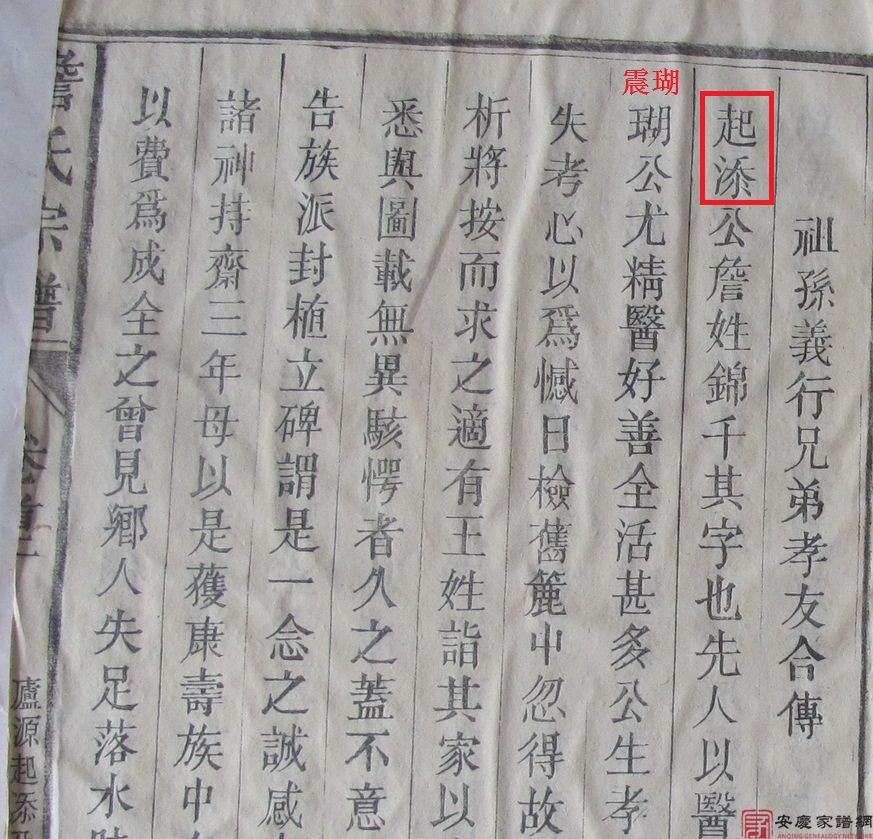 祖孫義行兄弟孝友合傳
起添公詹姓錦千其字也先人以醫
震瑚
瑚公尤精醫好善全活甚多公生孝
失考心以爲憾日檢舊簏中忽得故
析將按而求之適有王姓詣其家以
悉與圖載無異駭愕者久之蓋不意
告族派封植立碑謂是一念之誠感
諸神持齋三年母以是獲康壽族中
以費爲成全之曾見鄉人失足落水
詹氏宗譜 卷首
廬源起添
安慶家譜網
ANQING GENEALOGY NETWORK